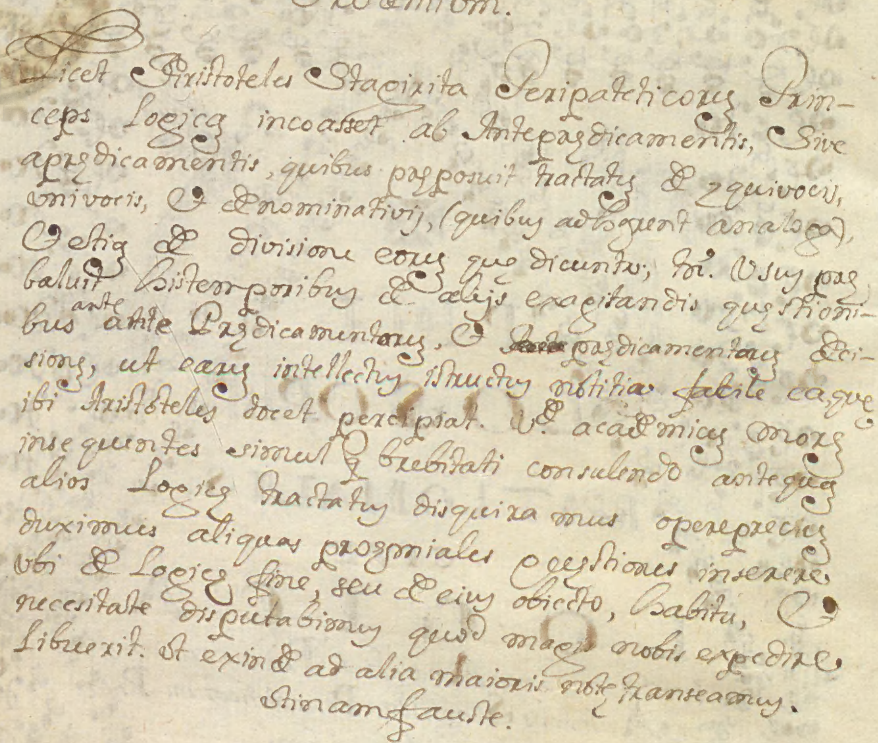 Proemium.
Licet Aristoteles Stagirita Peripateticorũ Prin-
ceps Logicã incoasset ab Antepredicamentis, Sive
apredicamentis, quibus preposuit tractatũ de equivocis,
univocis, & denominativis, (quibus adherent analoga),
& etiã de divisione eorũ que dicuntur, tñ. Usus pre
baluit histemporibus de alijs exagitandis questioni-
bus ante Predicamentorũ, & predicamentorũ deci-
sionẽ, ut earũ intellectus istructus notitia facile ea que
ibi Aristoteles docet percipiat. Vñ. academicũ morẽ
insequentes simul q brebitati consulendo antequã
alios Logice tractatus disquiramus opereprecium
duximus aliquas proemiales questiones inserere,
ubi de Logice fine, seu de eius obiecto, habitu, &
necesitate disputabimus quod magis nobis expedire
Libuerit. Ut exinde ad alia maioris note transeamus.
Utinam fauste.